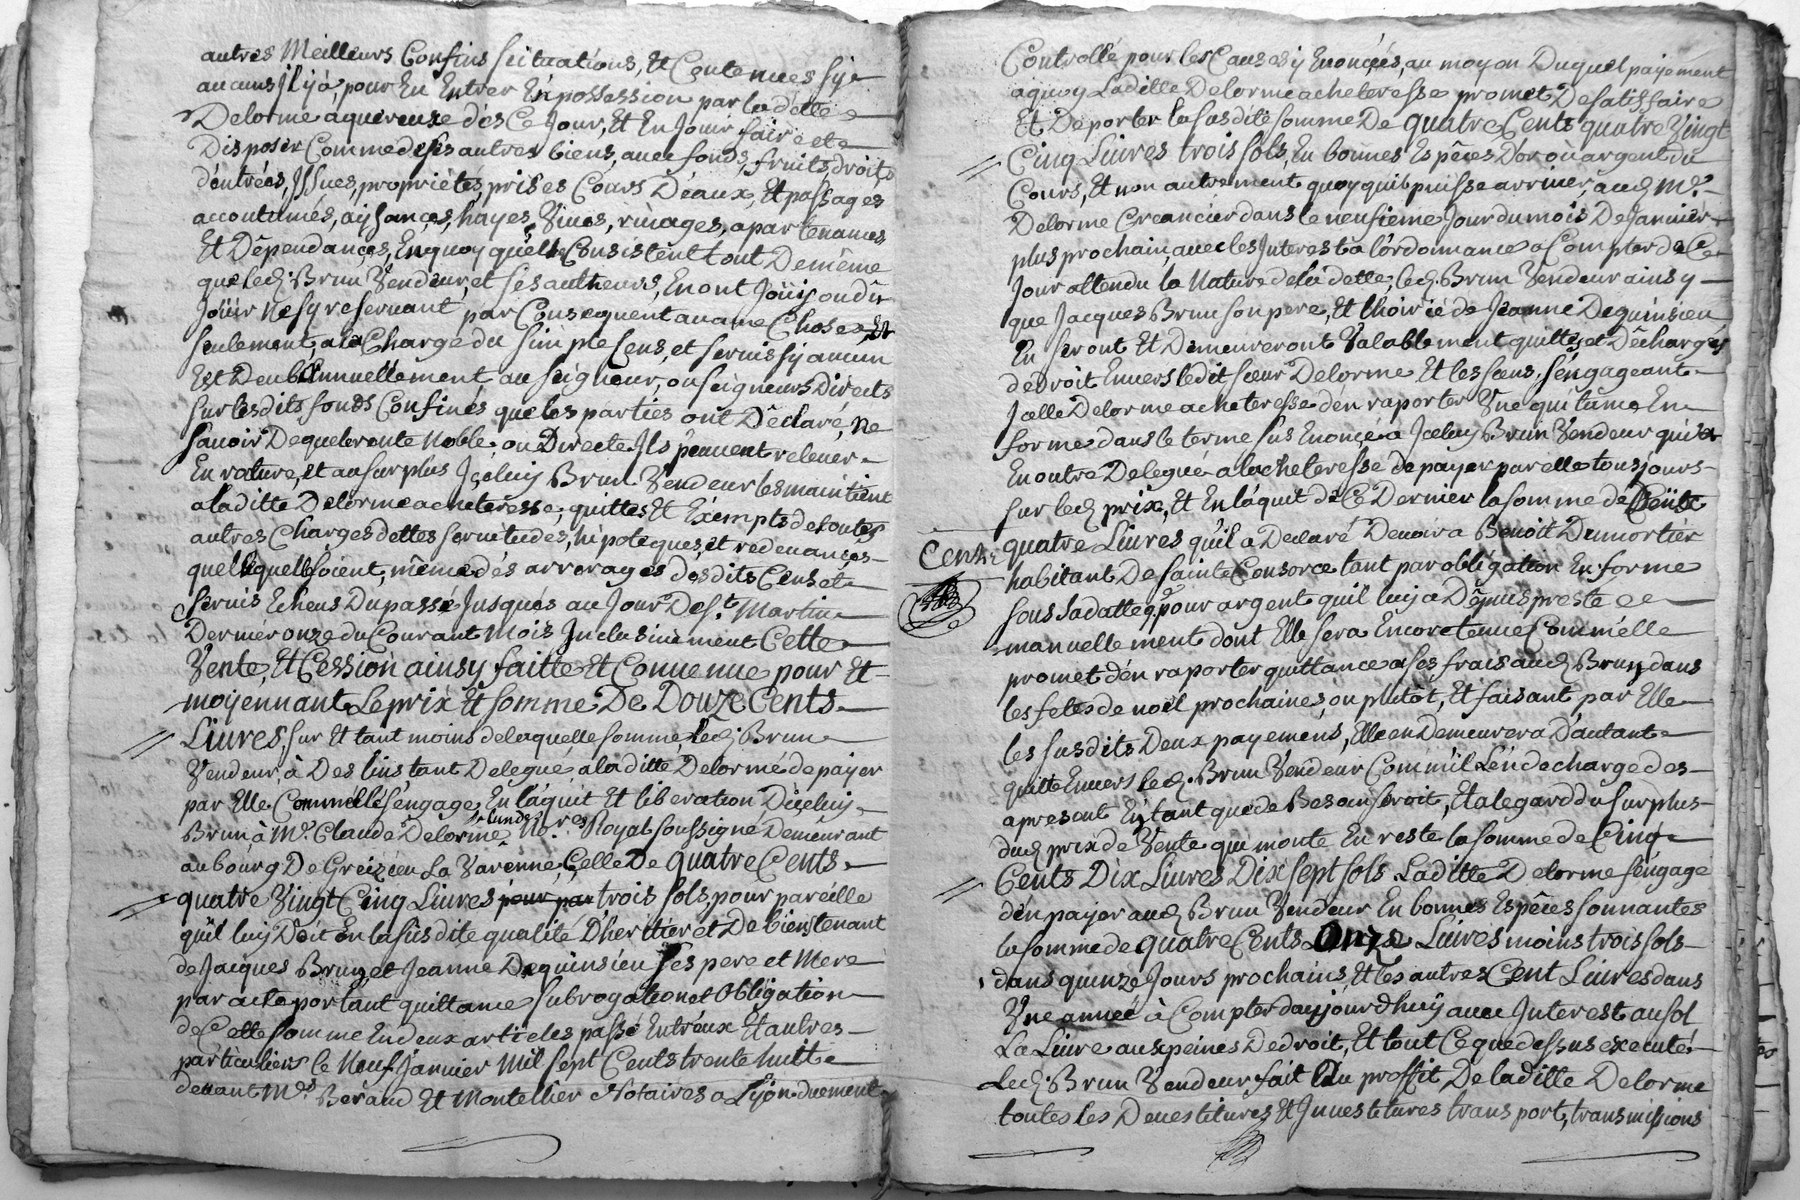 autres Meilleurs Confins scituations, Et Contenues sy
aucuns Il y à, pour En Entrer En possession par la ditte
Delorme aquereuse dés Ce Jour, Et En Jouir faire et
Disposer Comme de ses autres biens, avec fonds, fruits, droits
d'entrées, Issues, proprietés, prises Cours D'eaux, Et passages
accoutumés, aysances, hayes, Vives, rivages, apartenances
Et Dêpendances, En quoy quelle Consistent tout De même
que led. Brun Vendeur, et ses autheurs, En ont Joüis ou dû
Joüir N'esy reservant par Consequent aucune Chose Et
seulement, a la Charge du simple Cens, et servis sy aucun
Est Deub Annuellement au seigneur, ou seigneurs Directs
sur lesdits fonds Confinés que les parties ont Dêclaré, Ne
savoir De quele rente Noble, ou Directe Ils peuvent relever
En roture, et au surplus Iceluy Brun Vendeur les maintient
a laditte Delorme acheteresse, quittes Et Exempts de toutes
autres Charges dettes servitudes, hipoteques, et redevances
quelsquelle soient, même dés arrerages desdits Cens et
servis Echeus Du passé Jusques au Jour De St. Martin
Dernier onze du Courant mois Inclusivement Cette
Vente, Et Cession ainsy faitte Et Convenue pour Et
moyennant Le prix Et somme De Douze Cents
Livres, sur Et tant moins de laquelle somme, led. Brun
Vendeur, à Des l'instant Delegué, a la ditte Delorme de payer
par Elle Comm'elle s'engage, En l'aquit Et liberation D'iceluy
Brun à Me. Claude Delorme l'un des No.res Royal soussigné Demeurant
au bourg De Greizieu La Varenne, Celle De quatre Cents
quatre Vingt Cinq Livres pour par trois sols, pour pareille
qu'il luy Doit En la susdite qualité D'heritier et De bien tenant
de Jacques Brun, et Jeanne Deguinsieu ses pere et Mere
par acte portant quittance subrogation et Obligation
de Cette somme En deux articles passé Entr'eux Et autres
particuliers le Neuf Janvier Mil sept Cents trente huit
devant Mes. Beraud Et Montellier Notaires a Lyon duement
Controllé pour les Causes y Enonçées, au moyen Duquel payement
aquoy Laditte Delorme acheteresse promet De satisfaire
Et De porter la susdite somme De quatre Cents quatre Vingt
Cinq Livres trois sols, En bonnes Espêces D'or où argent du
Cours, Et non autrement quoy quil puisse arriver, aud. Me.
Delorme Creancier dans le neufieme Jour du mois De Janvier
plus prochain, avec les Interest à l'ordonnance a Compter de Ce
Jour attendu la Nature de la dette, led. Brun Vendeur ainsy
que Jacques Brun son pere, Et l'hoirie de Jeanne Deguinsieu
En seront Et Demeureront Valablement quittes, et Dêchargés
de droit Envers ledit sieur Delorme Et les siens, s'engageant
Icelle Delorme acheteresse d'en raporter Une quittance En
forme dans le terme sus Enonçé a Iceluy Brun Vendeur qui a
En outre Delegué a l'acheteresse de payer par elle tousjours
sur led. prix, Et En l'aquit de Ce Dernier la somme de Cent
Cent
quatre Livres qu'il a Declaré Devoir a Benoit Dumortier
habitant De Sainte Consorce tant par obligation En forme
sous sa datte, que pour argent qu'il luy a Dêpuis presté
manuellement dont Elle sera Encore tenue Comm'elle
promet d'en raporter quittance a ses frais aud. Brun, dans
les fetes de noël prochaines, ou plutôt, Et faisant par Elle
les susdits Deux payemens, Elle en Demeurera D'autant
quitte Envers led. Brun Vendeur Comm'il L'en decharge des
apresent En tant que de Besoin seroit, Et a l'egard du surplus
dud. prix de Vente qui monte En reste la somme de Cinq
Cents Dix Livres Dix sept sols Laditte Delorme s'engage
d'en payer aud. Brun Vendeur En bonnes Espêces sonnantes
la somme de quatre Cents Onze Livres moins trois sols
dans quinze Jours prochains, Et les autres Cent Livres dans
Une année à Compter d'aujourd'huy avec Interest au sol
La Livre aux peines De droit, Et tout Ce que dessus executé
Led. Brun Vendeur fait Au proffit De laditte Delorme
toutes les Devestitures Et Investitures transport, transmissions